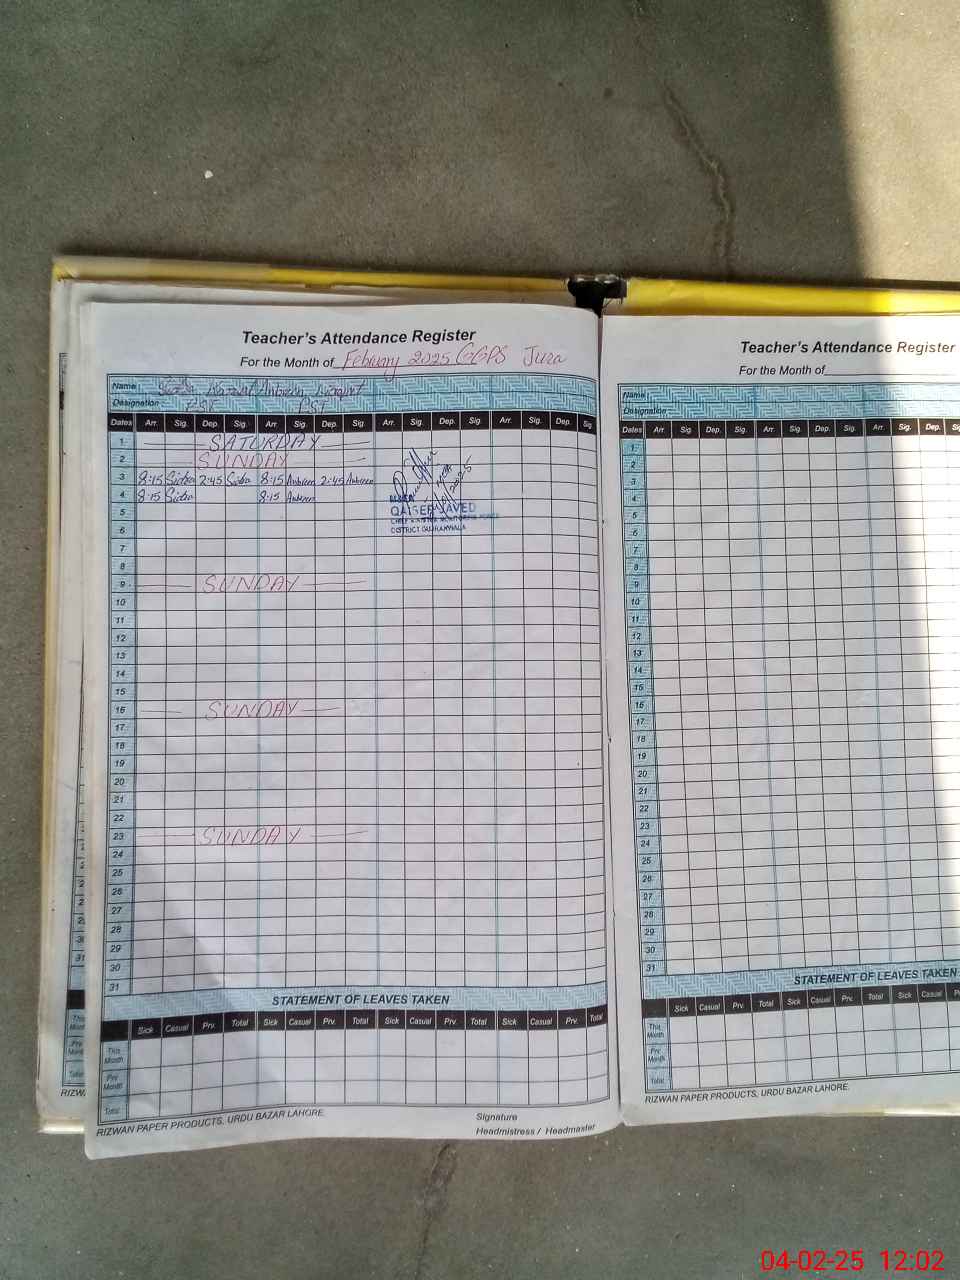 Teacher's Attendance Register
For the Month of February 2025 GGPS Jura
Name
Designation PST PST
Dates Arr. Sig. Dep. Sig. Arr. Sig. Dep. Sig. Arr. Sig. Dep. Sig. Arr. Sig. Dep. Sig.
1 SATURDAY
2 SUNDAY
3 8:15 Sidra 2:45 Sidra 8:15 Ambreen 2:45 Ambreen
4 8:15 Sidra 8:15 Ambreen
QAISER JAVED
DISTRICT GUJRANWALA
5
6
7
8
9 SUNDAY
10
11
12
13
14
15
16 SUNDAY
17
18
19
20
21
22
23 SUNDAY
24
25
26
27
28
29
30
31
STATEMENT OF LEAVES TAKEN
Sick Casual Prv. Total Sick Casual Prv. Total Sick Casual Prv. Total Sick Casual Prv. Total
This Month
Prv. Month
Total
RIZWAN PAPER PRODUCTS, URDU BAZAR LAHORE.
Signature
Headmistress / Headmaster
Teacher's Attendance Register
For the Month of
Name
Designation
Dates Arr. Sig. Dep. Sig. Arr. Sig. Dep. Sig. Arr. Sig. Dep.
1
2
3
4
5
6
7
8
9
10
11
12
13
14
15
16
17
18
19
20
21
22
23
24
25
26
27
28
29
30
31
STATEMENT OF LEAVES TAKEN
Sick Casual Prv. Total Sick Casual Prv. Total Sick Casual
This Month
Prv. Month
Total
RIZWAN PAPER PRODUCTS, URDU BAZAR LAHORE.
04-02-25 12:02